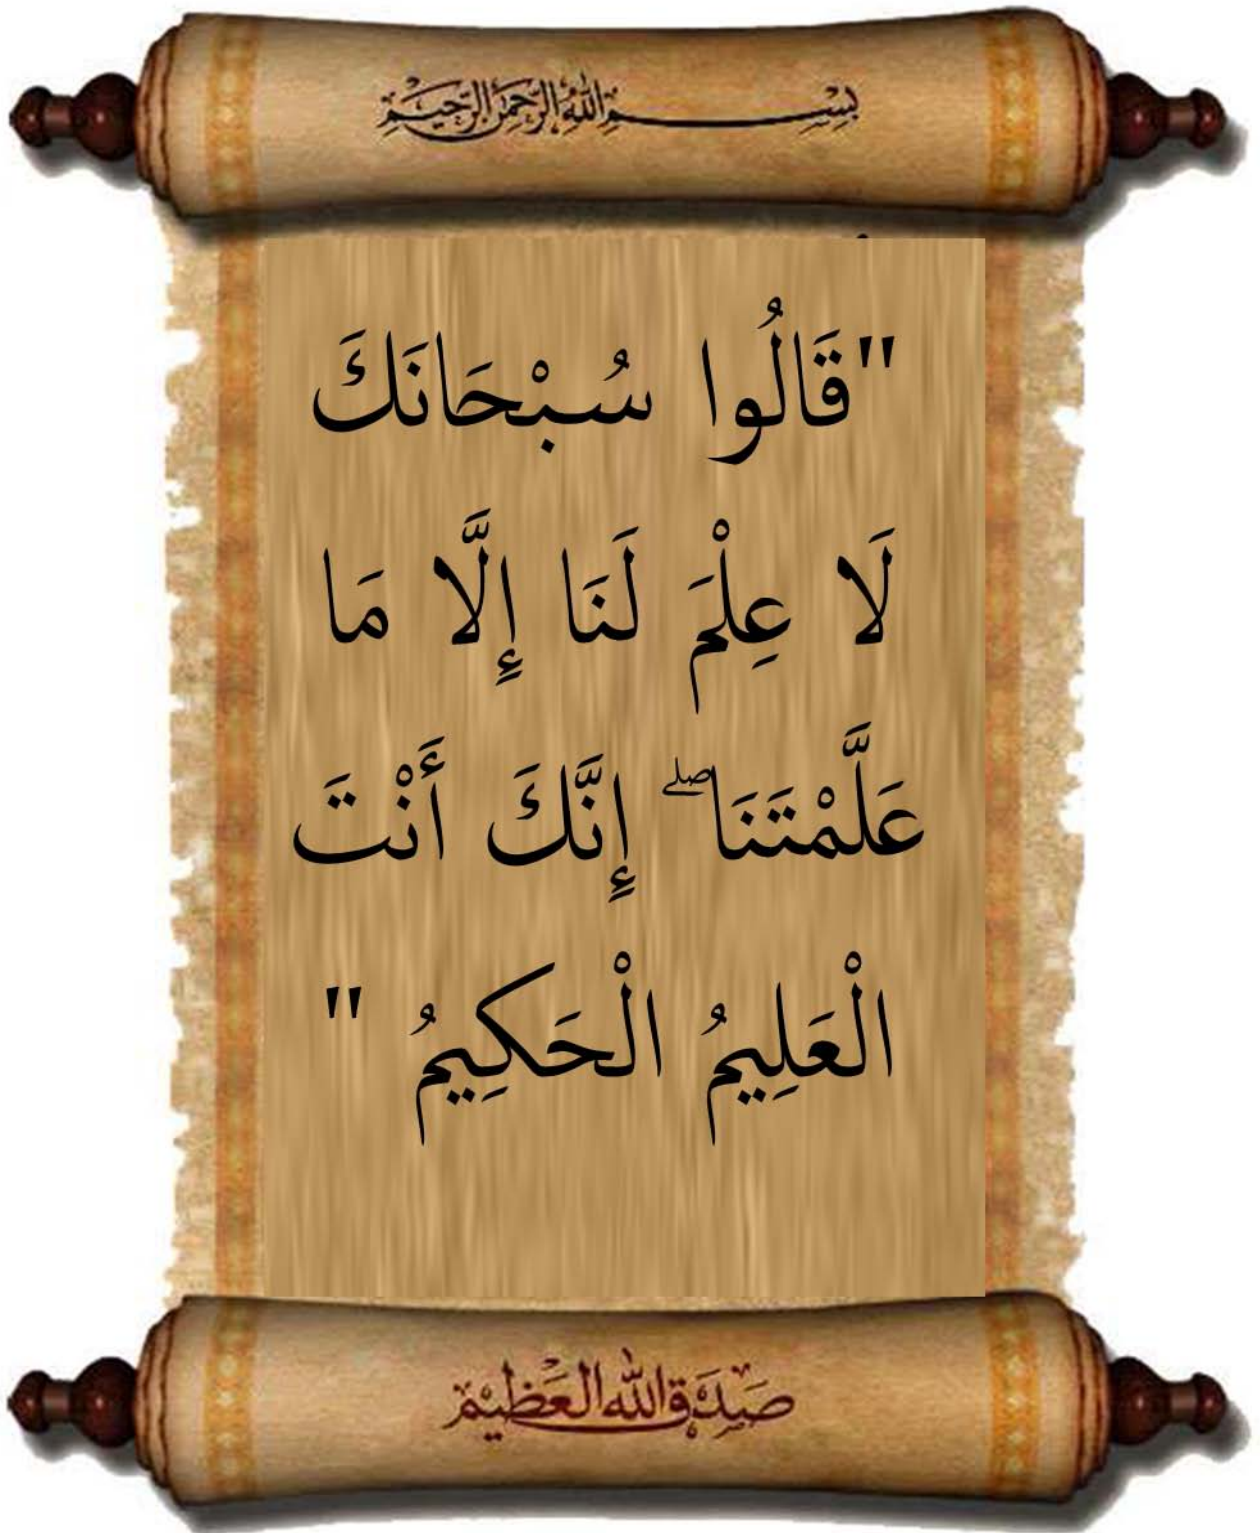 بِسْمِ اللَّهِ الرَّحْمَنِ الرَّحِيمِ
"قَالُوا سُبْحَانَكَ
لَا عِلْمَ لَنَا إِلَّا مَا
عَلَّمْتَنَا ۖ إِنَّكَ أَنْتَ
الْعَلِيمُ الْحَكِيمُ "
صَدَقَ اللَّهُ الْعَظِيمُ